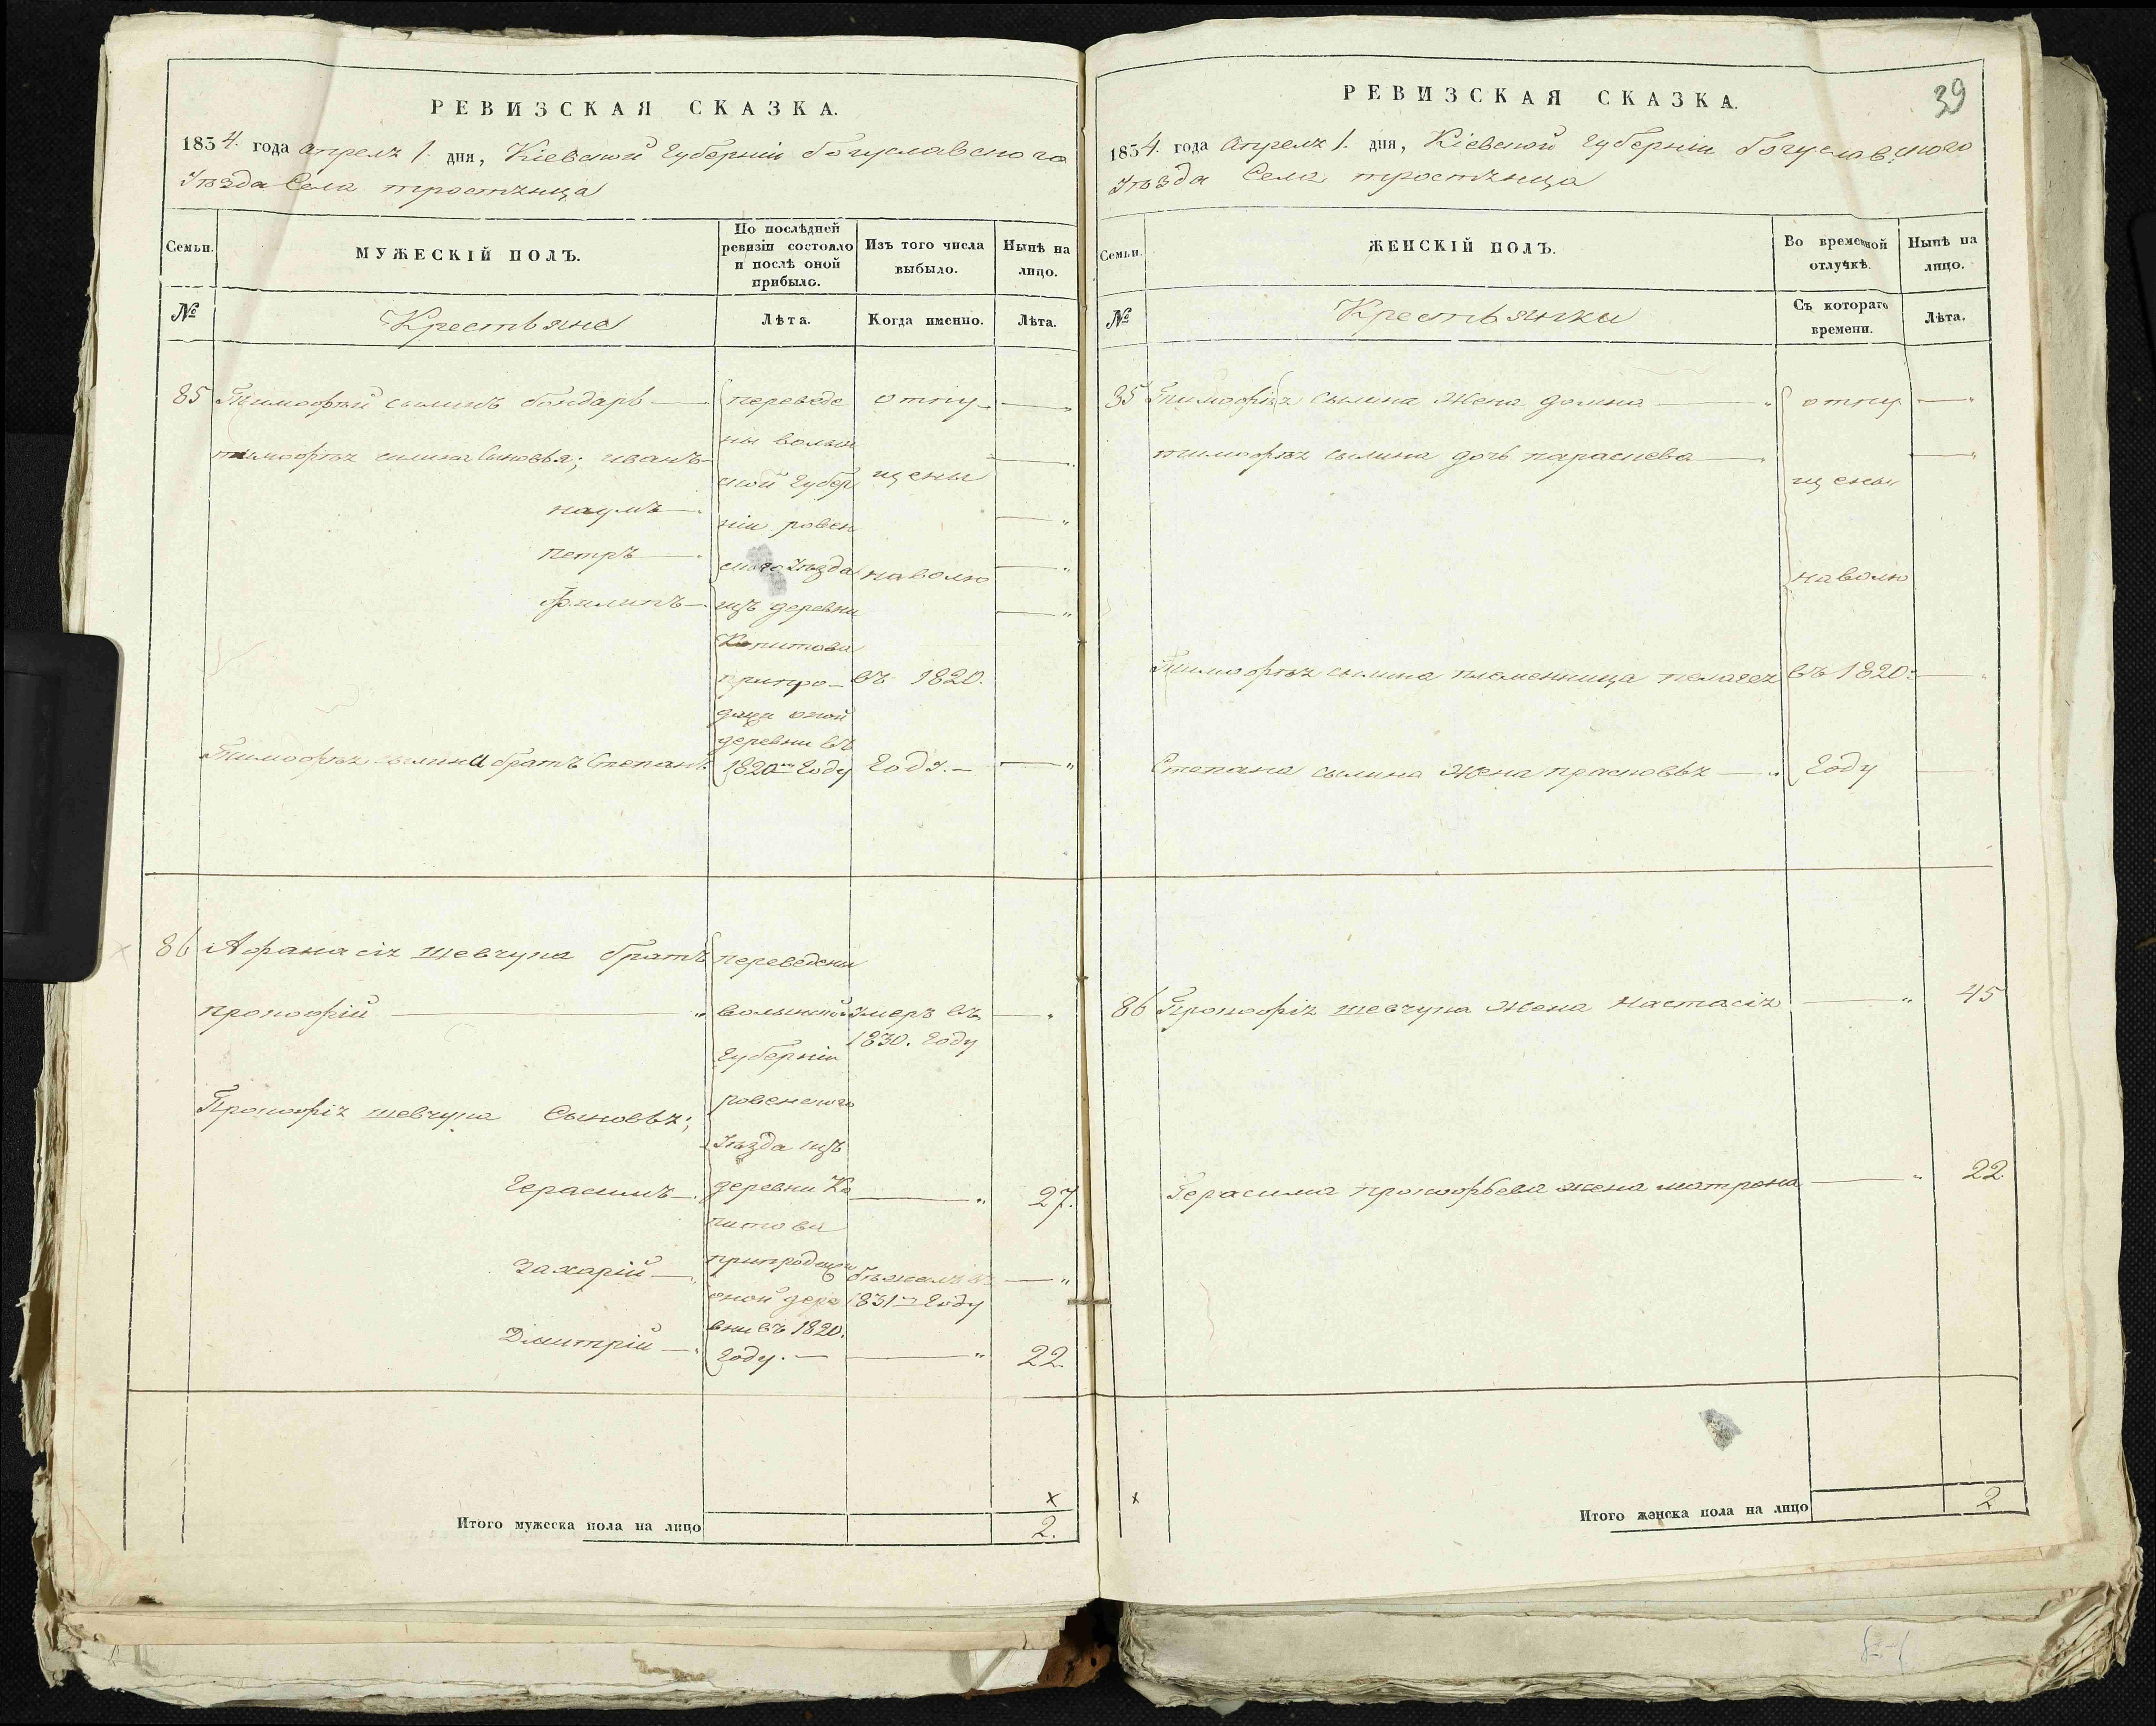 РЕВИЗСКАЯ СКАЗКА.
1834. года Апреля 1. дня, Кіевской Губерніи богуславского
Уѣзда Села тростянца
Семьи.
МУЖЕСКІЙ ПОЛЪ.
По послѣдней
ревизіи состояло
и послѣ оной
прибыло.
Изъ того числа
выбыло.
Нынѣ на
лицо.
№
Крестьяне
Лѣта.
Когда именно.
Лѣта.
85 Тимофѣй силинъ бондарь
переведе
отпу
тимофѣя силина Сыновья; иванъ
ны волын
ской Губер
щены
наумъ
ніи ровен
петръ
ского Уѣзда
наволю
Филипъ
изъ деревни
Копитова
припро-
въ 1820.
дажи оной
деревни въ
Тимофѣя силина братъ Степанъ
1820мъ Году
Году.
86 Афанасія шевчука братъ
переведены
прокофій
волынской
умеръ въ
1830. Году
Губерніи
Прокофія шевчука Сыновья;
ровенского
Уѣзда изъ
Герасимъ
деревни Ко
27.
питова
Захарій
припродажи
бѣжалъ въ
оной дере
1831мъ Году
Дмитрій
вни въ 1820.
Году.
22.
х
Итого мужеска пола на лицо
2.
39
РЕВИЗСКАЯ СКАЗКА.
1834. года Апреля 1. дня, Кіевской Губерніи богуславского
Уѣзда Села тростянца
Семьи.
ЖЕНСКІЙ ПОЛЪ.
Во временной
отлучкѣ.
Нынѣ на
лицо.
№
Крестьянки
Съ котораго
времени.
Лѣта.
85 Тимофѣя силина Жена домна
отпу
тимофѣя силина дочь параскева
щены
наволю
Тимофѣя силина племенница пелагея
въ 1820:
Степана силина Жена прасковья
Году
86 Прокофія шевчука Жена Настасія
45
Герасима прокофьева жена матрона
22.
х
Итого женска пола на лицо
2